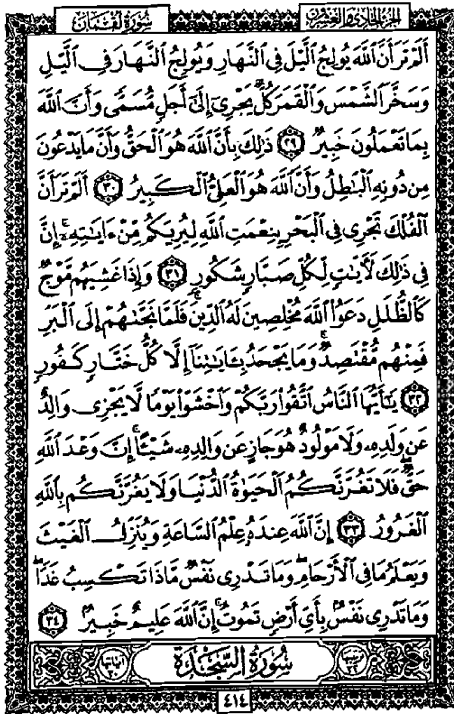 الجزء الحادي والعشرون
سورة لقمان
أَلَمْ تَرَ أَنَّ ٱللَّهَ يُولِجُ ٱلَّيْلَ فِي ٱلنَّهَارِ وَيُولِجُ ٱلنَّهَارَ فِي ٱلَّيْلِ
وَسَخَّرَ ٱلشَّمْسَ وَٱلْقَمَرَ كُلٌّ يَجْرِيٓ إِلَىٰٓ أَجَلٍ مُّسَمًّى وَأَنَّ ٱللَّهَ
بِمَا تَعْمَلُونَ خَبِيرٌ ٢٩ ذَٰلِكَ بِأَنَّ ٱللَّهَ هُوَ ٱلْحَقُّ وَأَنَّ مَا يَدْعُونَ
مِن دُونِهِ ٱلْبَٰطِلُ وَأَنَّ ٱللَّهَ هُوَ ٱلْعَلِيُّ ٱلْكَبِيرُ ٣٠ أَلَمْ تَرَ أَنَّ
ٱلْفُلْكَ تَجْرِي فِي ٱلْبَحْرِ بِنِعْمَتِ ٱللَّهِ لِيُرِيَكُم مِّنْ ءَايَٰتِهِۦٓ ۚ إِنَّ
فِي ذَٰلِكَ لَءَايَٰتٍ لِّكُلِّ صَبَّارٍ شَكُورٍ ٣١ وَإِذَا غَشِيَهُم مَّوْجٌ
كَٱلظُّلَلِ دَعَوُا۟ ٱللَّهَ مُخْلِصِينَ لَهُ ٱلدِّينَ فَلَمَّا نَجَّىٰهُمْ إِلَى ٱلْبَرِّ
فَمِنْهُم مُّقْتَصِدٌ ۚ وَمَا يَجْحَدُ بِـَٔايَٰتِنَآ إِلَّا كُلُّ خَتَّارٍ كَفُورٍ
٣٢ يَٰٓأَيُّهَا ٱلنَّاسُ ٱتَّقُوا۟ رَبَّكُمْ وَٱخْشَوْا۟ يَوْمًا لَّا يَجْزِي وَالِدٌ
عَن وَلَدِهِۦ وَلَا مَوْلُودٌ هُوَ جَازٍ عَن وَالِدِهِۦ شَيْـًٔا ۚ إِنَّ وَعْدَ ٱللَّهِ
حَقٌّ ۖ فَلَا تَغُرَّنَّكُمُ ٱلْحَيَوٰةُ ٱلدُّنْيَا وَلَا يَغُرَّنَّكُم بِٱللَّهِ
ٱلْغَرُورُ ٣٣ إِنَّ ٱللَّهَ عِندَهُۥ عِلْمُ ٱلسَّاعَةِ وَيُنَزِّلُ ٱلْغَيْثَ
وَيَعْلَمُ مَا فِي ٱلْأَرْحَامِ ۖ وَمَا تَدْرِي نَفْسٌ مَّاذَا تَكْسِبُ غَدًا ۖ
وَمَا تَدْرِي نَفْسٌۢ بِأَيِّ أَرْضٍ تَمُوتُ ۚ إِنَّ ٱللَّهَ عَلِيمٌ خَبِيرٌۢ ٣٤
سورة السجدة
٤١٤